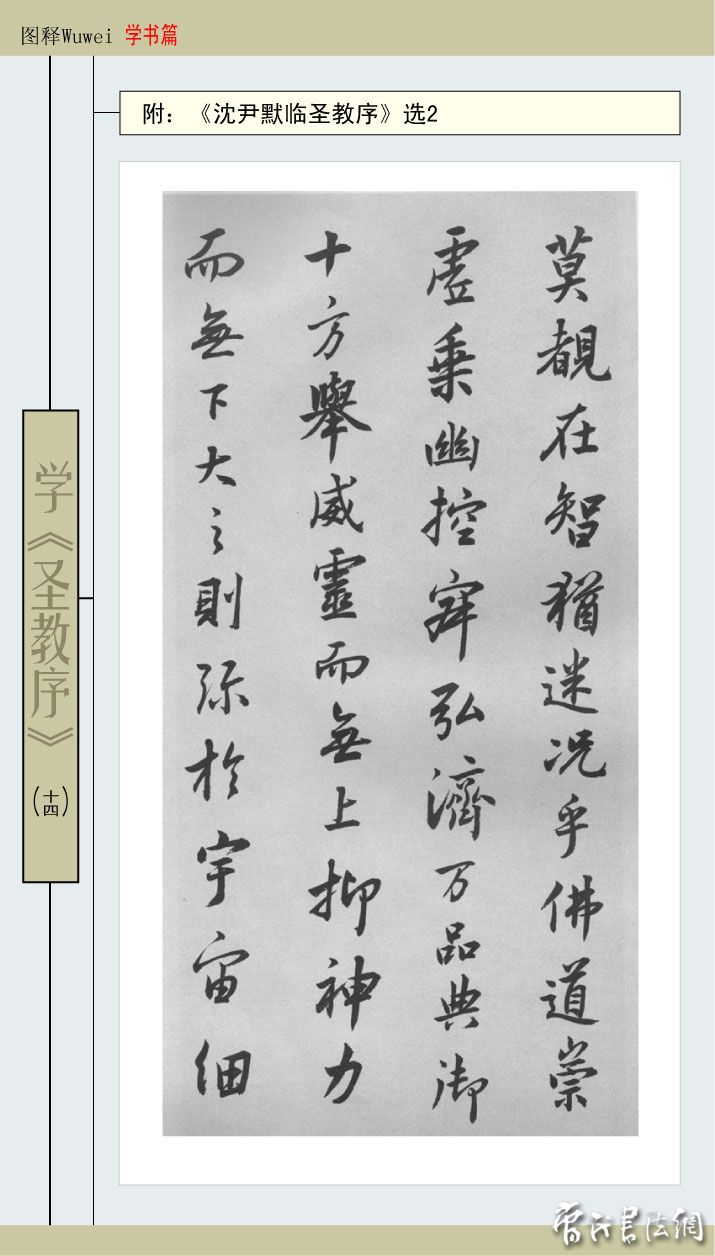 图释Wuwei 学书篇
附：《沈尹默临圣教序》选2
莫覩在智猶迷况乎佛道崇
虛乗幽控寂弘濟万品典御
十方舉威靈而無上抑神力
而無下大之則弥於宇宙細
学《圣教序》
（十四）